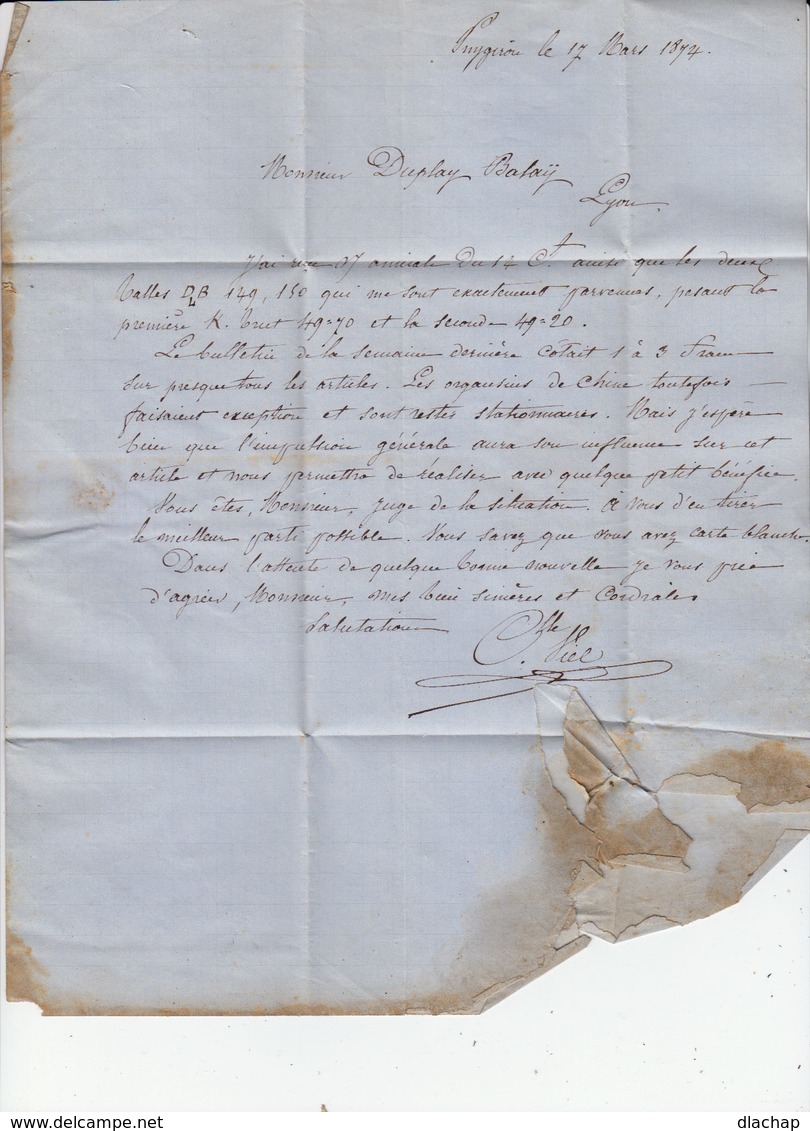 Puygiron le 17 Mars 1874.
Monsieur Duplay Balaÿ
Lyon
J'ai reçu Vt amicale du 14 Ct ainsi que les deux
balles DB 149, 150 qui me sont exactement parvenues, pesant la
première K. brut 49=70 et la seconde 49=20.
Le bulletin de la semaine dernière côtait 1 à 3 Francs
sur presque tous les articles. Les organsins de Chine toutefois
faisaient exception et sont restés stationnaires. Mais j'espère
bien que l'impulsion générale aura son influence sur cet
article et nous permettra de réaliser avec quelque petit bénéfice.
Vous êtes, Monsieur, juge de la situation. à vous d'en tirer
le meilleur parti possible. Vous savez que vous avez carte blanche.
Dans l'attente de quelque bonne nouvelle je vous prie
d'agréer, Monsieur, mes bien sincères et Cordiales
Salutations
dlachap